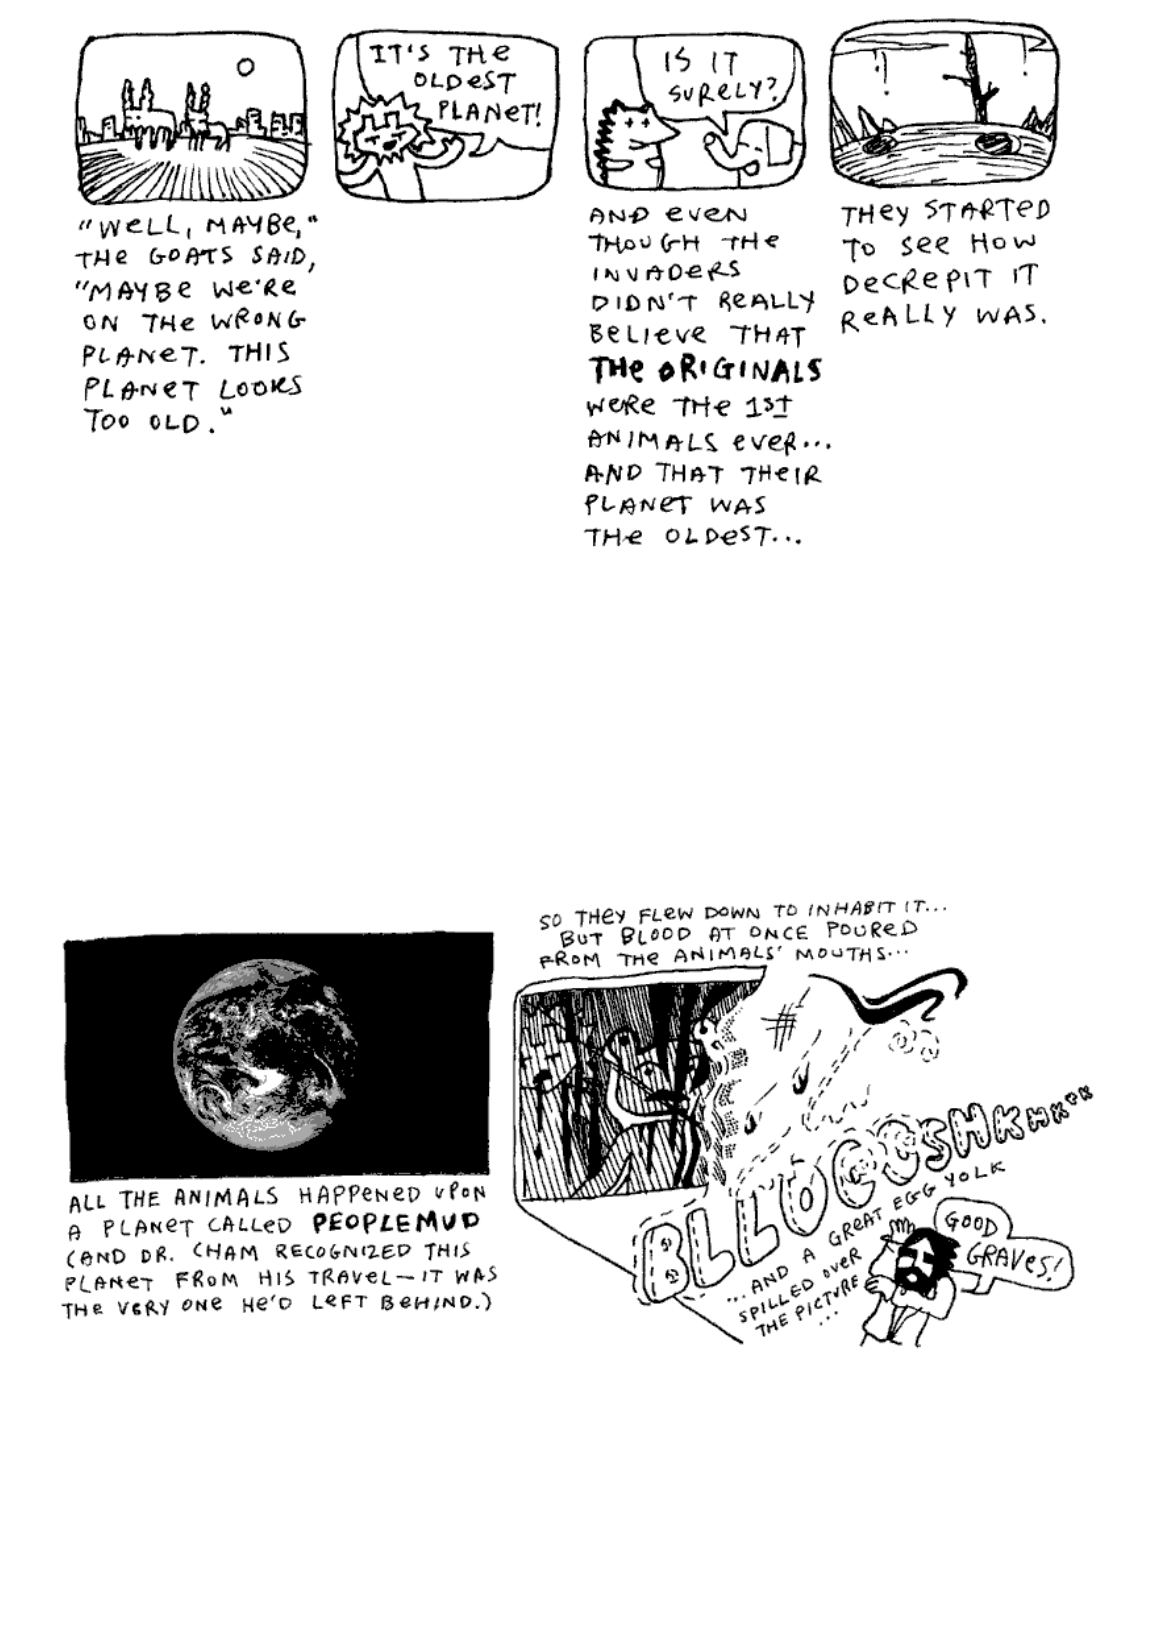 IT'S THE
OLDEST
PLANET!
IS IT
SURELY?
"WELL, MAYBE,"
THE GOATS SAID,
"MAYBE WE'RE
ON THE WRONG
PLANET. THIS
PLANET LOOKS
TOO OLD."
AND EVEN
THOUGH THE
INVADERS
DIDN'T REALLY
BELIEVE THAT
THE ORIGINALS
WERE THE 1ST
ANIMALS EVER...
AND THAT THEIR
PLANET WAS
THE OLDEST...
THEY STARTED
TO SEE HOW
DECREPIT IT
REALLY WAS.
ALL THE ANIMALS HAPPENED UPON
A PLANET CALLED PEOPLEMUD
(AND DR. CHAM RECOGNIZED THIS
PLANET FROM HIS TRAVEL—IT WAS
THE VERY ONE HE'D LEFT BEHIND.)
SO THEY FLEW DOWN TO INHABIT IT...
BUT BLOOD AT ONCE POURED
FROM THE ANIMALS' MOUTHS...
#
BLLLOGGSHKKK**
...AND A GREAT EGG YOLK
SPILLED OVER
THE PICTURE
...
GOOD
GRAVES!